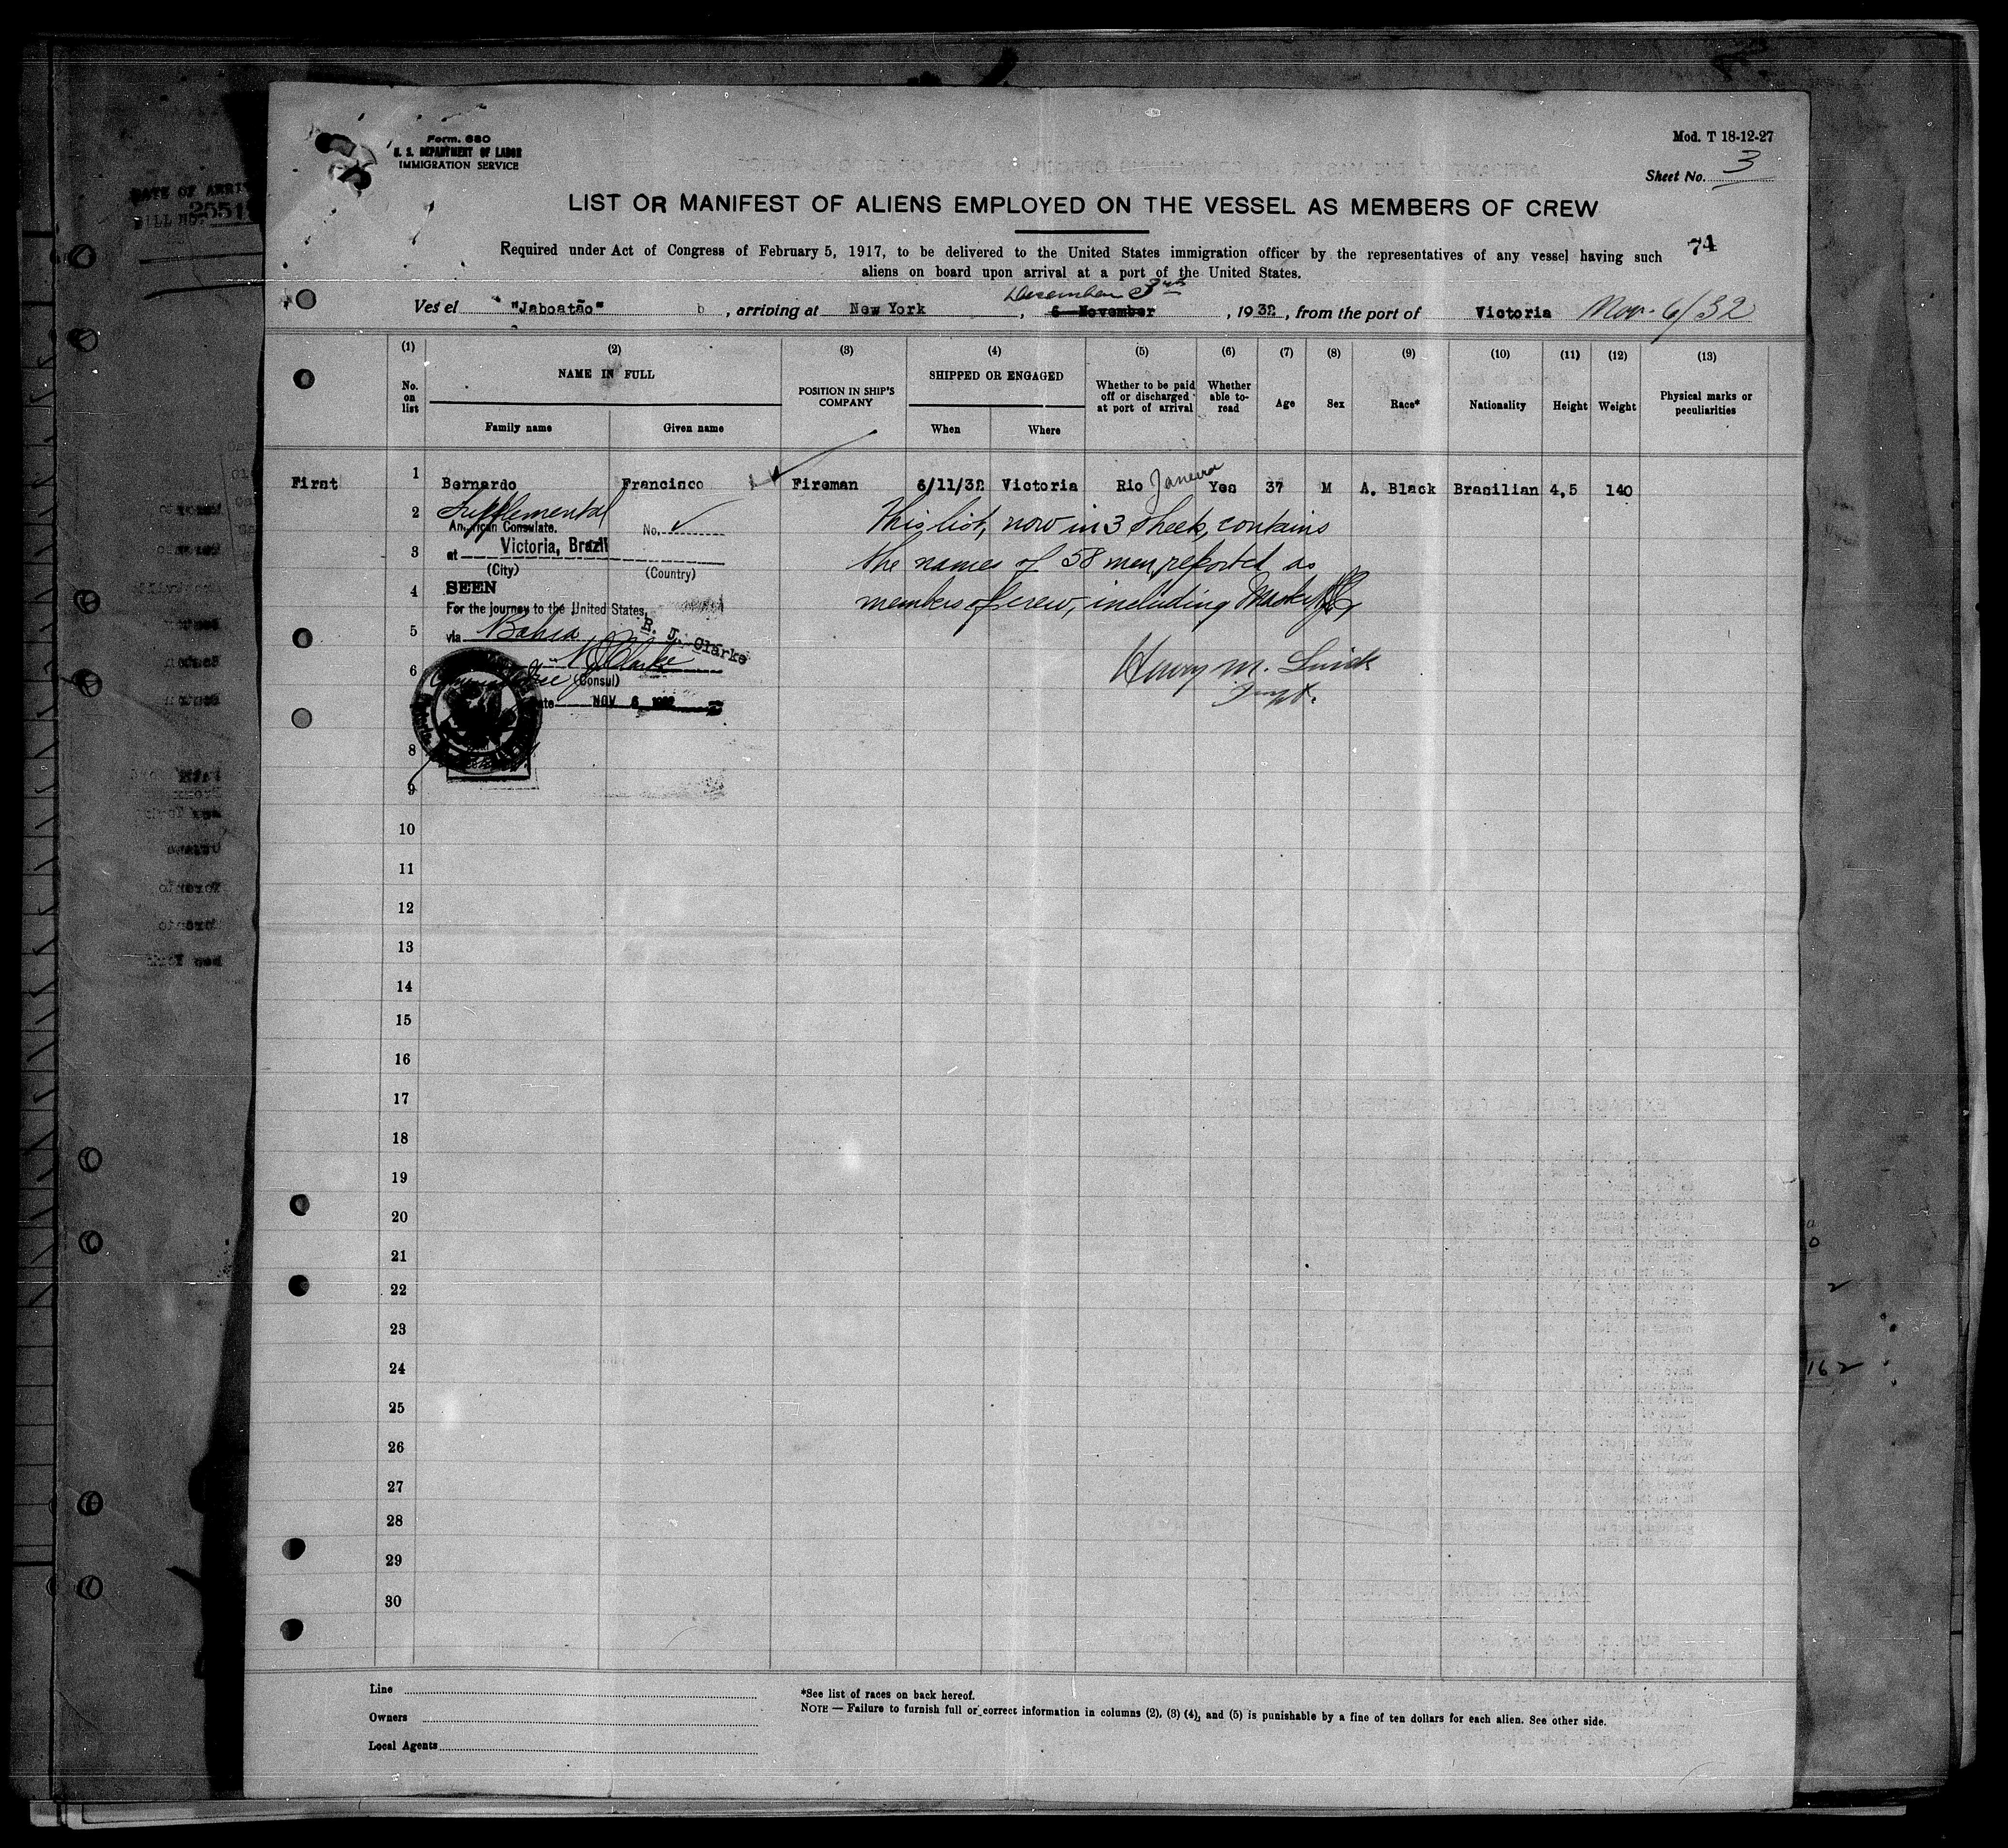 Form. 680
U. S. DEPARTMENT OF LABOR
IMMIGRATION SERVICE
Mod. T 18-12-27
Sheet No. 3
LIST OR MANIFEST OF ALIENS EMPLOYED ON THE VESSEL AS MEMBERS OF CREW
Required under Act of Congress of February 5, 1917, to be delivered to the United States immigration officer by the representatives of any vessel having such
aliens on board upon arrival at a port of the United States.
74
December 3rd
Vessel "Jaboatão" , arriving at New York , 6 November , 1932 , from the port of Victoria Nov. 6/32
(1) (2) (3) (4) (5) (6) (7) (8) (9) (10) (11) (12) (13)
No. on list
NAME IN FULL
Family name Given name
POSITION IN SHIP'S COMPANY
SHIPPED OR ENGAGED
When Where
Whether to be paid off or discharged at port of arrival
Whether able to- read
Age Sex Race* Nationality Height Weight
Physical marks or peculiarities
First 1 Bernardo Francisco Fireman 6/11/32 Victoria Rio Janeiro Yes 37 M A. Black Brasilian 4,5 140
2 Supplemental
American Consulate. No.
3 at Victoria, Brazil
(City) (Country)
4 SEEN
For the journey to the United States,
5 via Bahia
R. J. Clarke
6 (Consul)
Date NOV 6 1932
This list, now in 3 sheets, contains
the names of 58 men, reported as
members of crew, including Master
Henry M.
8
9
10
11
12
13
14
15
16
17
18
19
20
21
22
23
24
25
26
27
28
29
30
Line
Owners
Local Agents
*See list of races on back hereof.
NOTE — Failure to furnish full or correct information in columns (2), (3) (4), and (5) is punishable by a fine of ten dollars for each alien. See other side.
DATE OF ARRI
2551
162